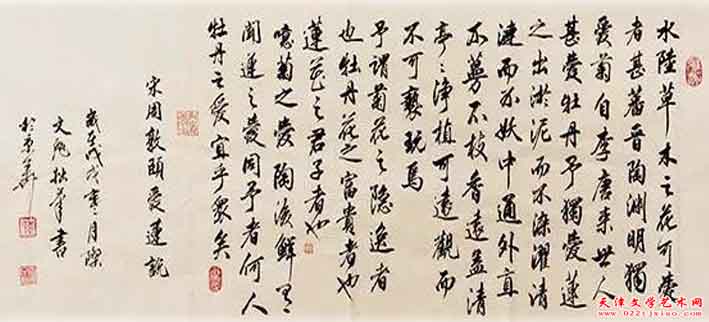 水陸草木之花可愛
者甚蕃晉陶淵明獨
愛菊自李唐来世人
甚愛牡丹予獨愛蓮
之出淤泥而不染濯清
漣而不妖中通外直
不蔓不枝香遠益清
亭〻淨植可遠觀而
不可褻玩焉
予謂菊花之隐逸者
也牡丹花之富貴者也
蓮花之君子者也
噫菊之愛陶後鮮有
聞蓮之愛同予者何人
牡丹之愛宜乎衆矣
宋周敦頤愛蓮説
歲在戊戌寒月
拙筆書
天津文学艺术网